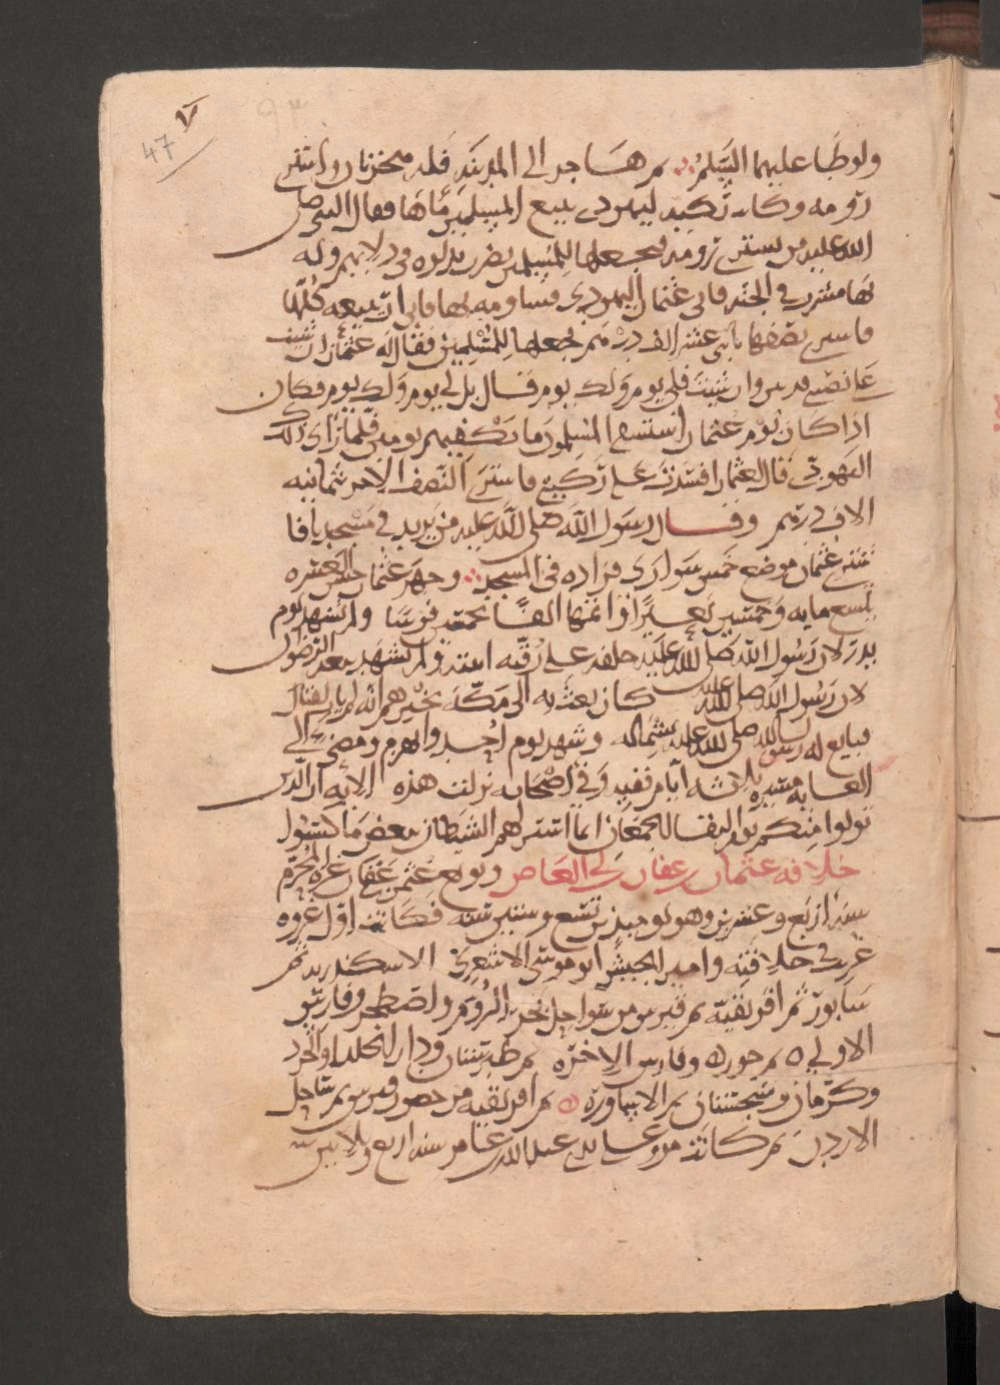 47
ولوطا عليهما السلم ثم هاجر الى المدينة فله هجرتان واشترى
رومه وكانت ركيه ليهودى يبيع المسلمين ماها فقال النبى صلى
الله عليه من يشترى رومه فيجعلها للمسلمين يضرب بدلوه فى دلايهم وله
بها مشرب فى الجنه فاتى عثمان اليهودى فساومه بها فابى ان يبيعه كلها
فاشترى نصفها باثنى عشر الف درهم فجعلها للمسلمين فقال له عثمان ان شيت
على نصيبى وان شيت فلى يوم ولك يوم فقال بل لى يوم ولك يوم فكان
اذا كان يوم عثمان استسقى المسلمون ما يكفيهم يومين فلما راى ذلك
اليهودى قال لعثمان افسدت على ركيتى فاشترى النصف الاخر بثمانيه
الاف درهم وقال رسول الله صلى الله عليه من يزيد فى مسجدنا فا
شترى عثمان موضع خمس سوارى فزاده فى المسجد وجهز عثمان جيش العسره
بتسع مايه وخمسين بعيرا واتمها الفا بخمسين فرسا ولم يشهد يوم
بدر لان رسول الله صلى الله عليه خلفه على رقيه ابنته ولم يشهد بيعه الرضوان
لان رسول الله صلى الله عليه كان بعث به الى مكه يخبرهم انه لم يات لقتال
فبايع له رسول الله صلى الله عليه بشماله وشهد يوم احد وانهزم ومضى الى
الغابه مسيره ثلاثه ايام ففيه وفى اصحابه نزلت هذه الايه ان الذين
تولوا منكم يوم التقا الجمعان انما استزلهم الشيطان ببعض ما كسبوا
خلافه عثمان بن عفان بن ابى العاص وبويع عثمن بن عفان غره المحرم
سنه اربع وعشرين وهو يوميذ بن تسع وستين سنه فكانت اول غزوه
غزيت فى خلافته وامير الجيش ابو موسى الاشعرى الاسكندريه ثم
سابور ثم افريقيه ثم قبرس من سواحل بحر الروم واصطخر وفارس
الاولى ثم جور وفارس الاخره ثم طبرستان ودارابجرد
وكرمان وسجستان ثم الاساوره ثم افريقيه من حصن قبرس ثم ساحل
الاردن ثم كانت مرو على يدى عبد الله بن عامر سنه اربع وثلاثين